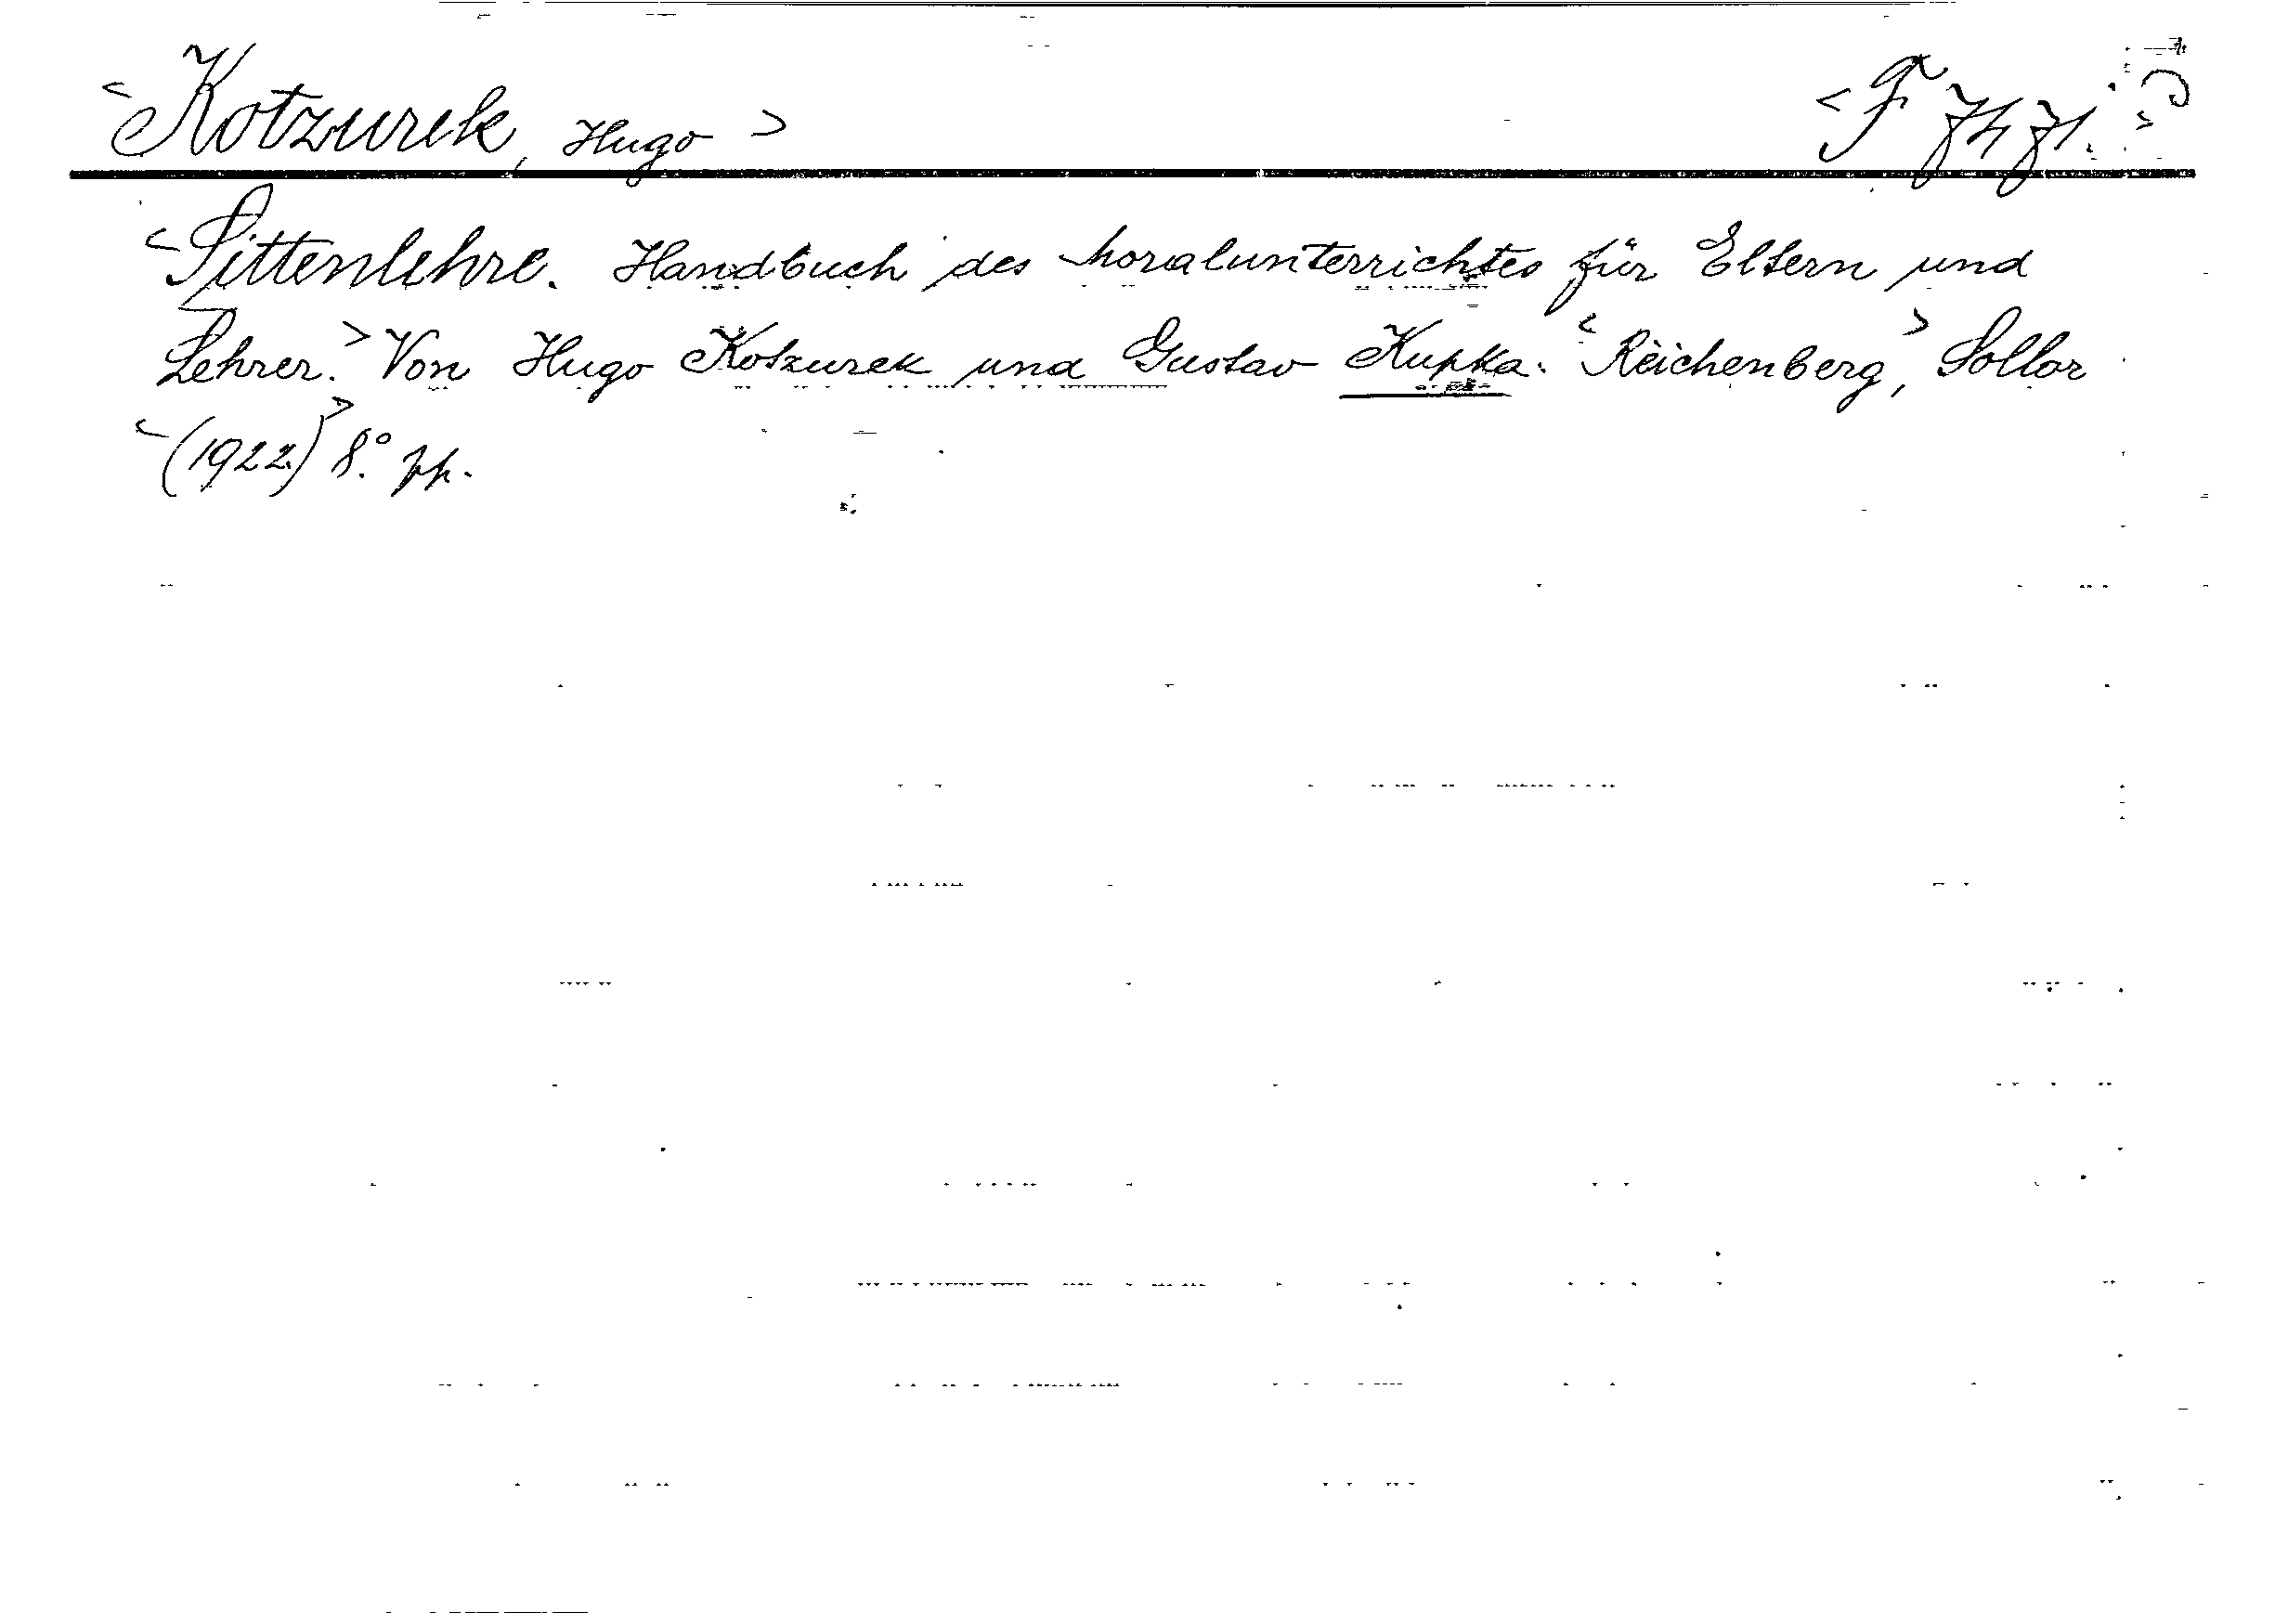 <Kotzurek, Hugo> <F 7471.>
<Sittenlehre. Handbuch des Moralunterrichtes für Eltern und
Lehrer.> Von Hugo Kotzurek und Gustav Kupka. <Reichenberg,> Sollor
<(1922)> 8.°